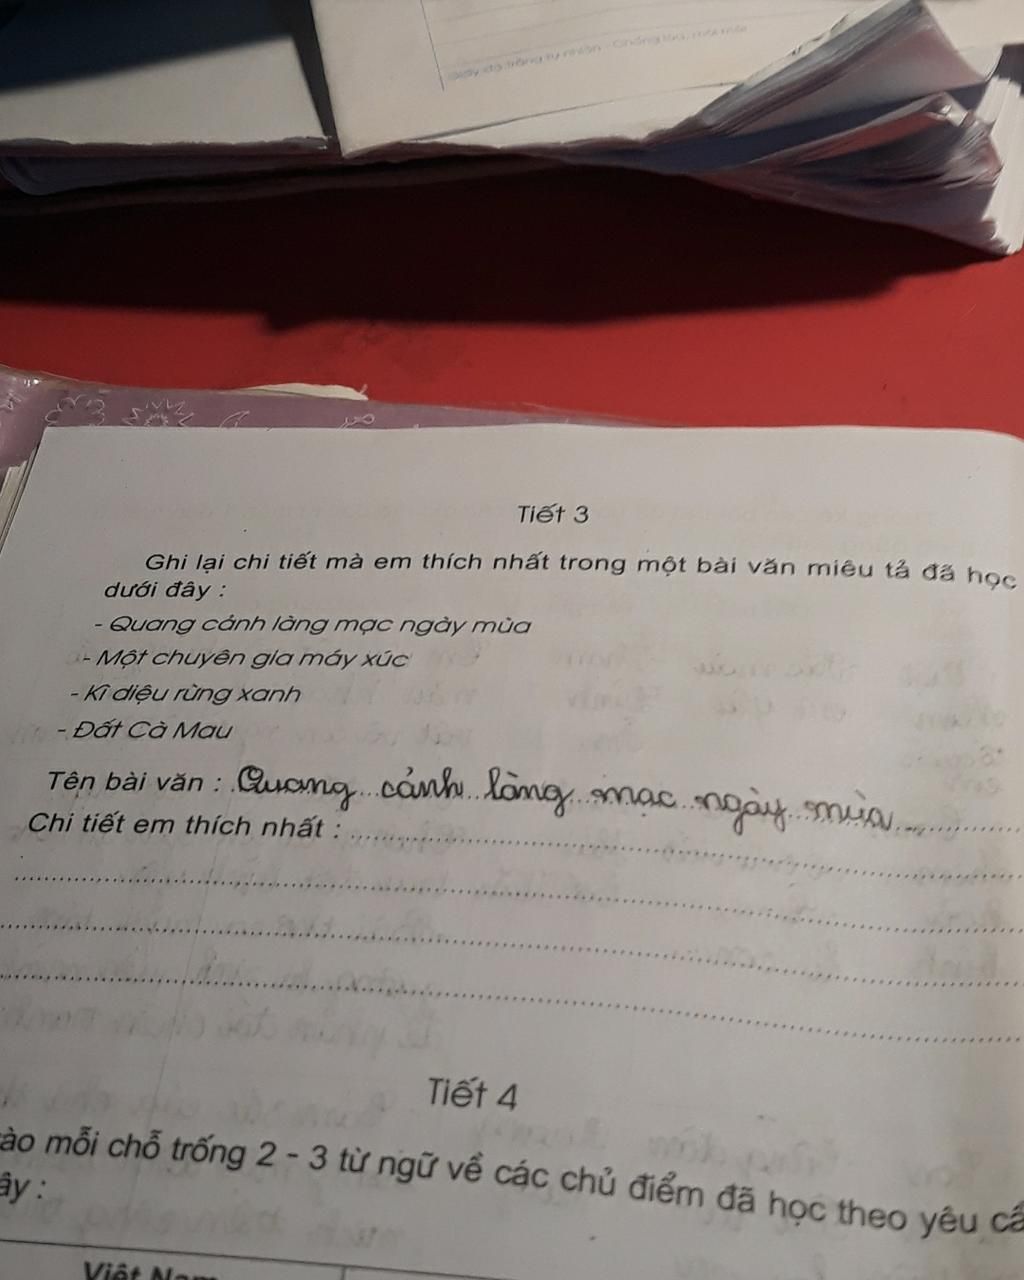 Giấy độ trắng tự nhiên - Chống lóa, mỏi mắt
Tiết 3
Ghi lại chi tiết mà em thích nhất trong một bài văn miêu tả đã học
dưới đây :
- Quang cảnh làng mạc ngày mùa
- Một chuyên gia máy xúc
- Kì diệu rừng xanh
- Đất Cà Mau
Tên bài văn : Quang cảnh làng mạc ngày mùa
Chi tiết em thích nhất :
Tiết 4
ào mỗi chỗ trống 2 - 3 từ ngữ về các chủ điểm đã học theo yêu cầ
ây :
Việt Nam